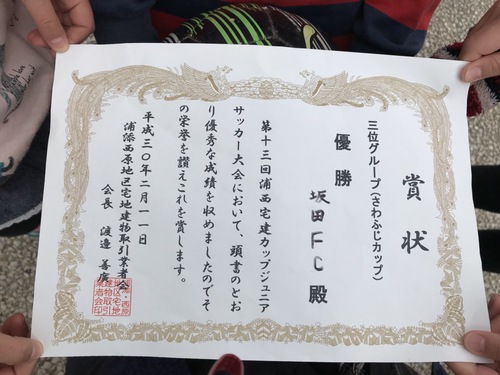 賞状
三位グループ（さわふじカップ）
優勝
坂田FC殿
第十三回浦西宅建カップジュニア
サッカー大会において、頭書のとお
り優秀な成績を収めましたのでそ
の栄誉を讃えこれを賞します。
平成三〇年二月一一日
浦添西原地区宅地建物取引業者会
会長 渡邉 善廣